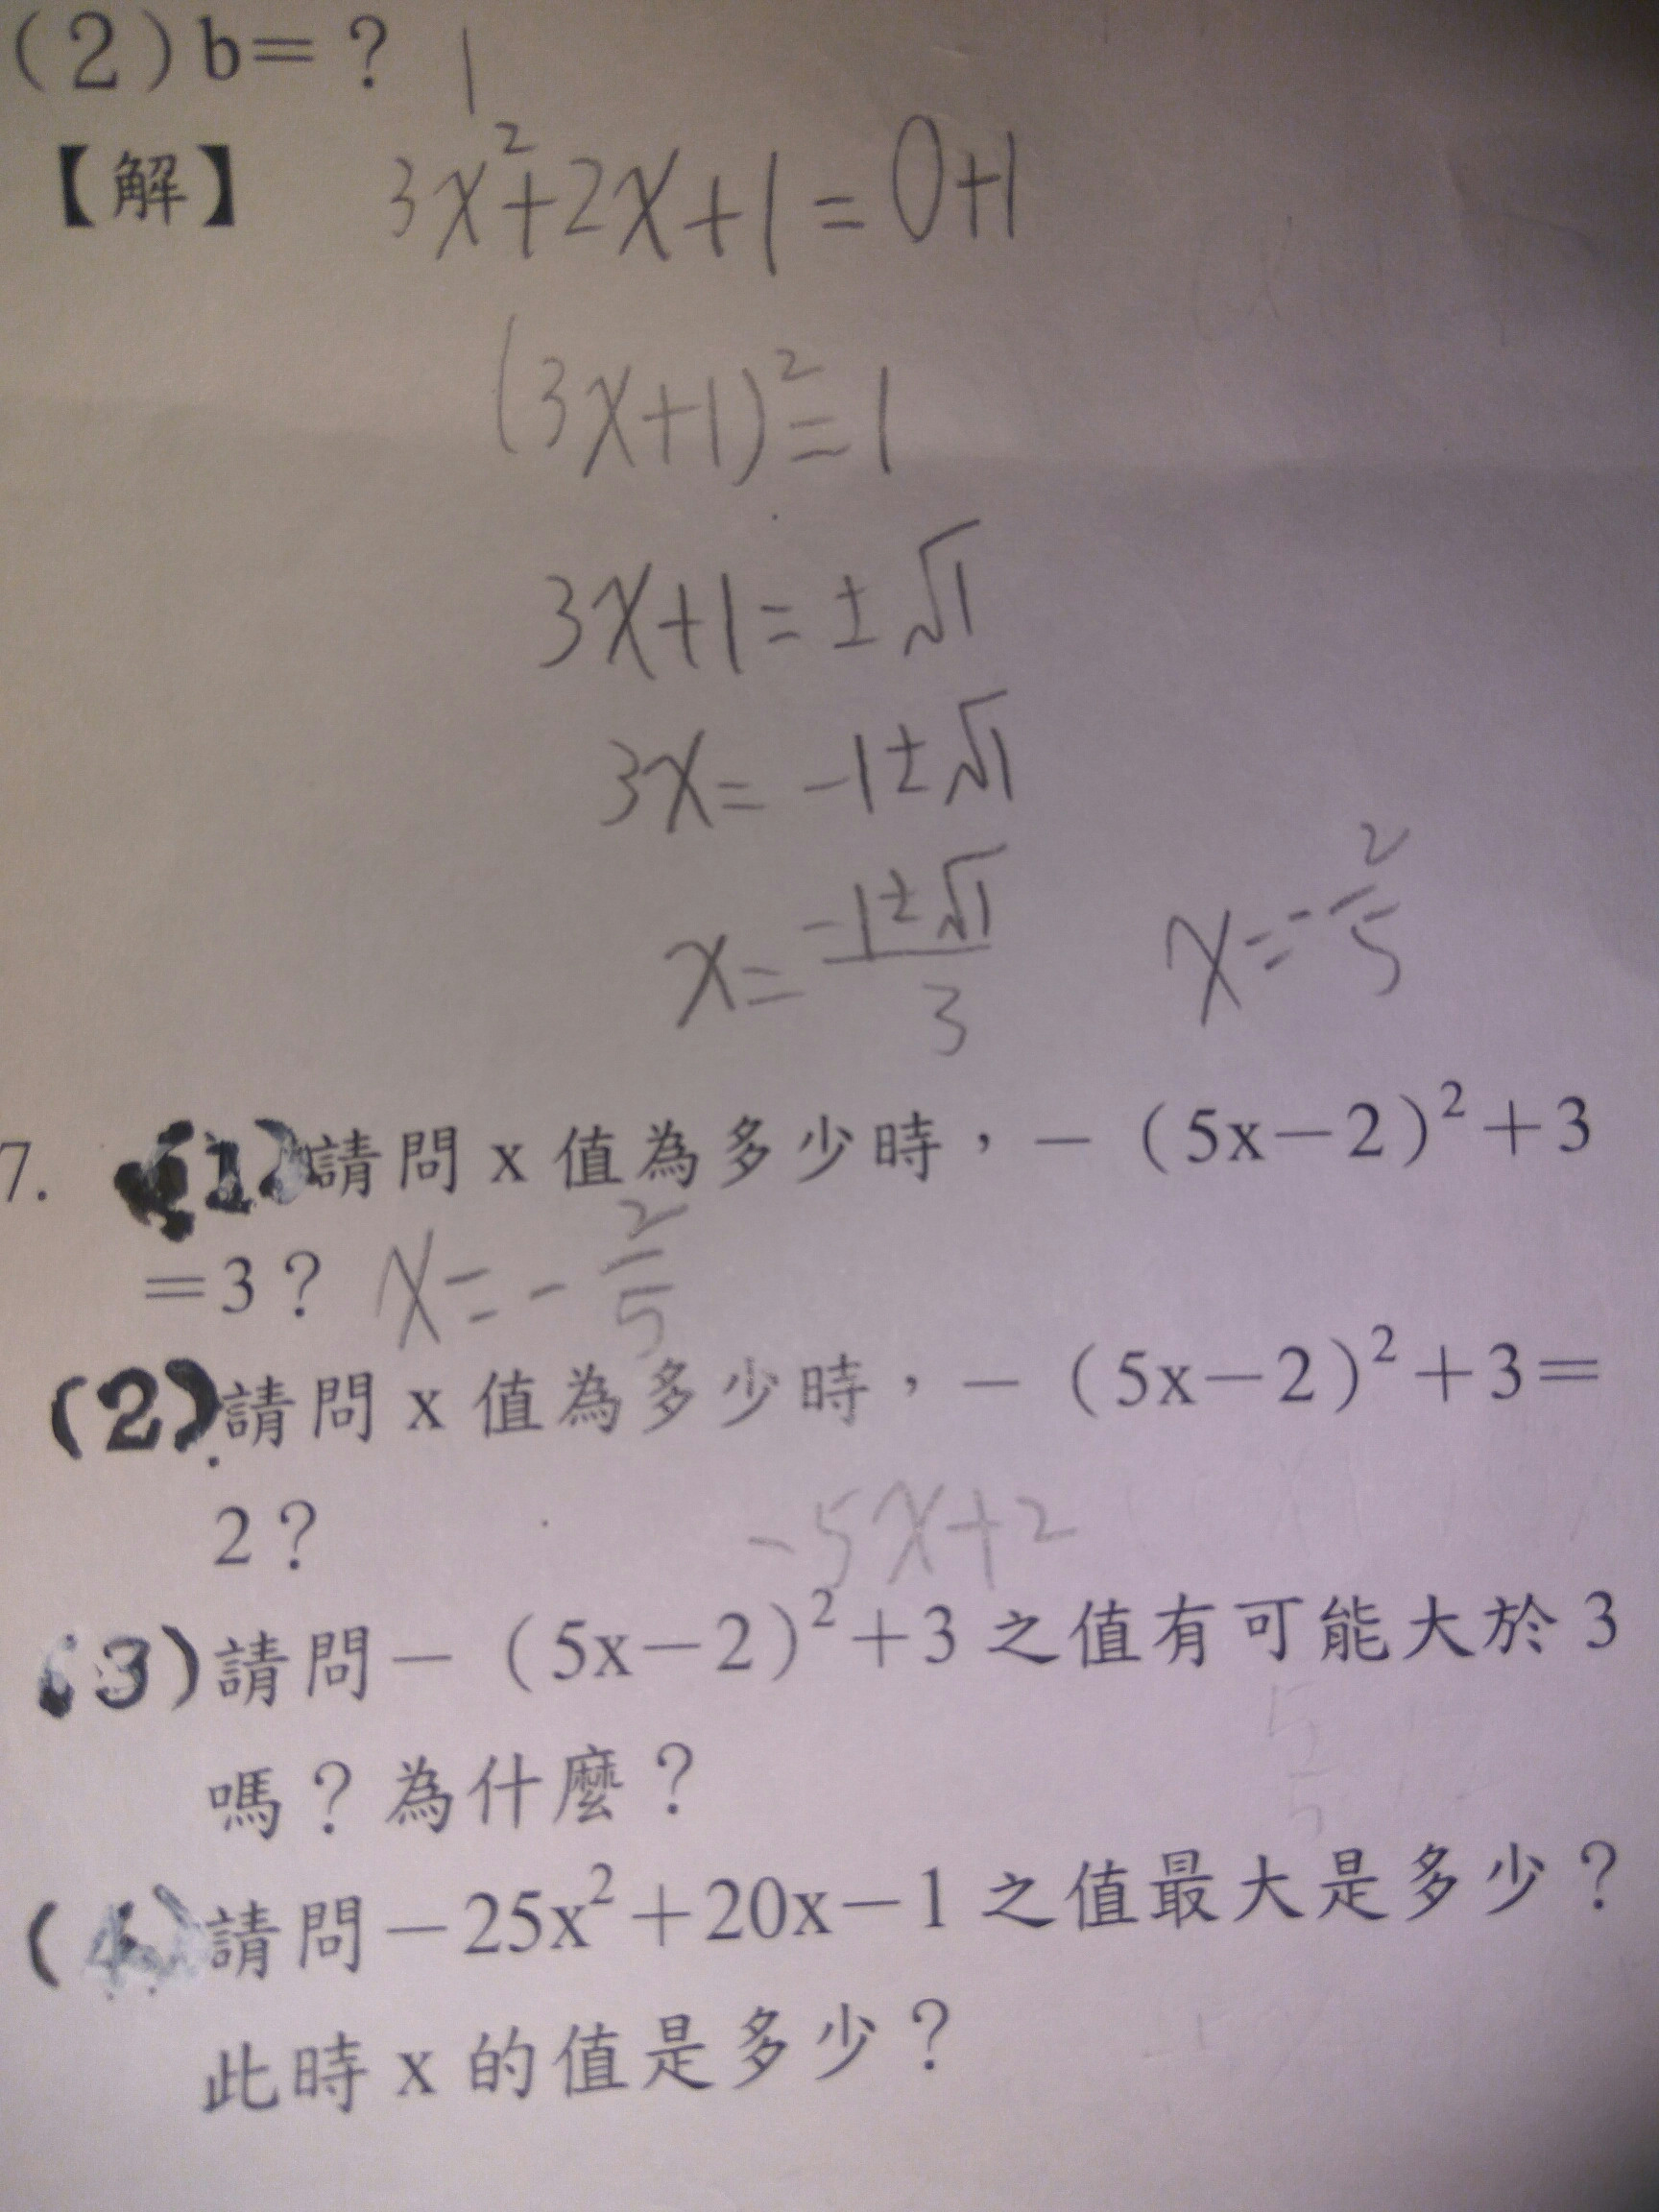 (2) b=? 1
【解】 3x²+2x+1=0+1
(3x+1)²=1
3x+1=±√1
3x=-1±√1
x=(-1±√1)/3 x=-2/5
7. (1)請問 x 值為多少時，－(5x－2)²＋3
＝3？ x=-2/5
(2)請問 x 值為多少時，－(5x－2)²＋3＝
2？ -5x+2
(3)請問－(5x－2)²＋3 之值有可能大於 3
嗎？為什麼？
(4)請問－25x²＋20x－1 之值最大是多少？
此時 x 的值是多少？